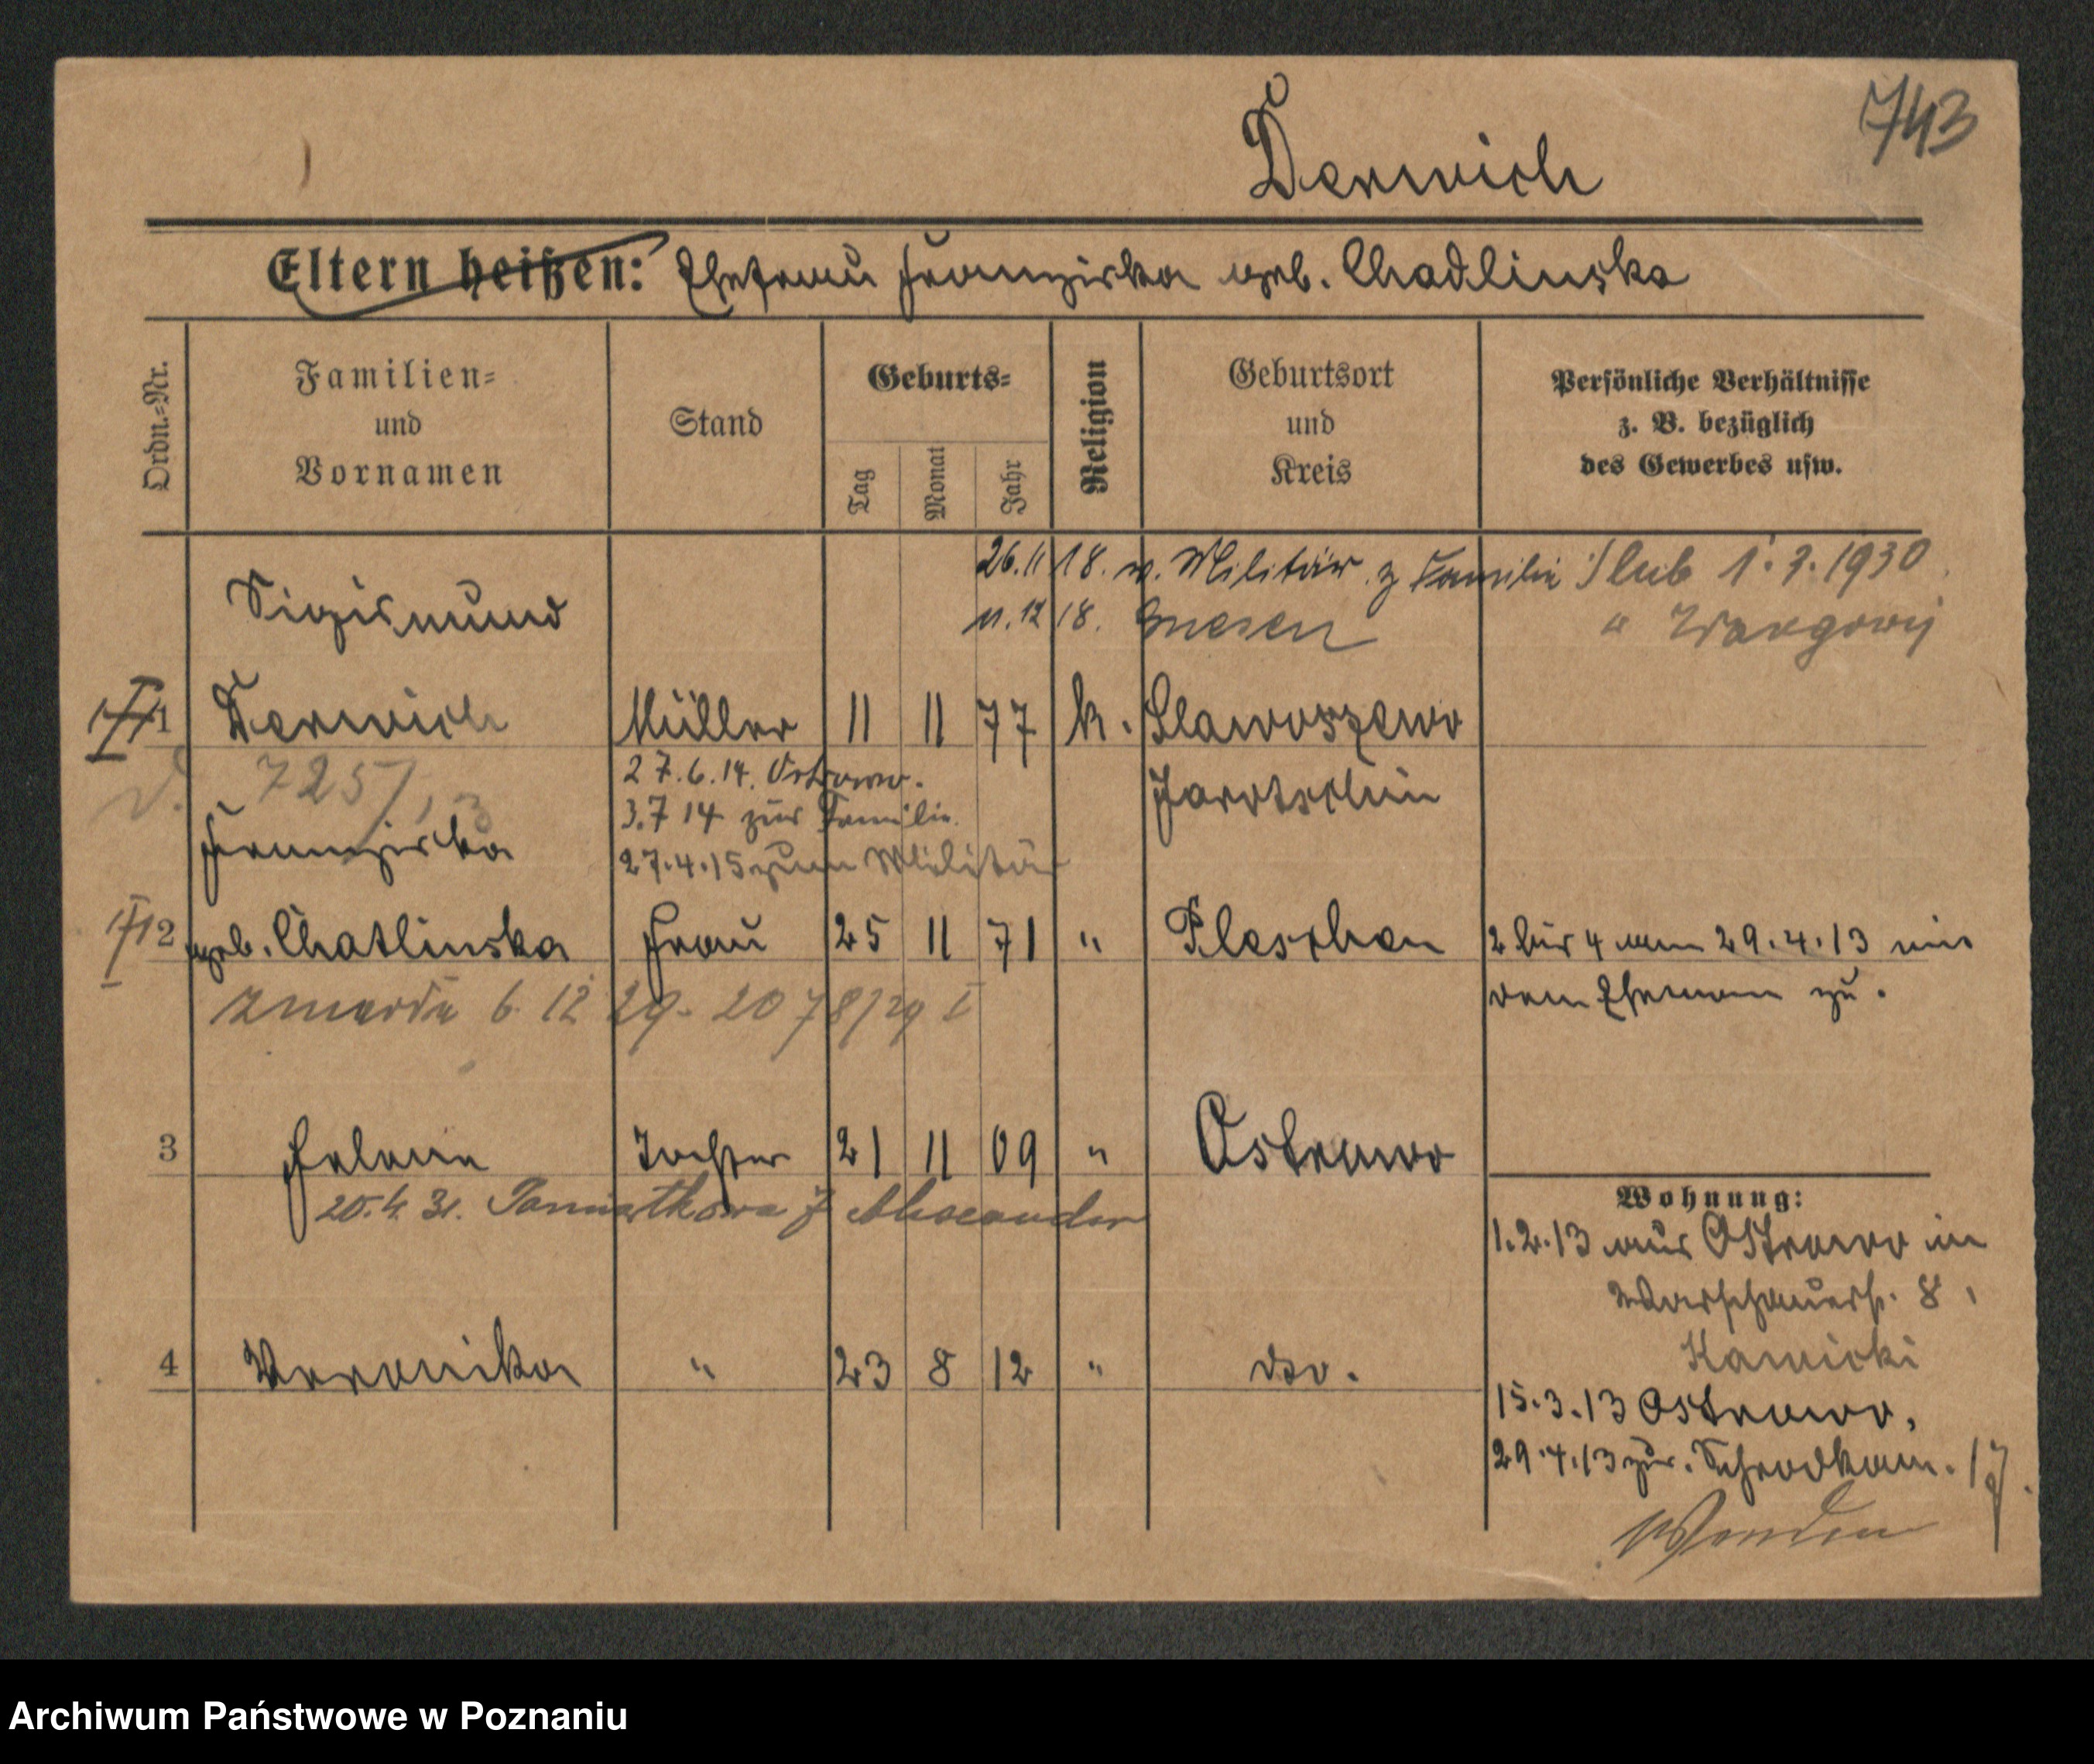 743
Derwich
Eltern heißen: Ehefrau Franziska geb. Chadlinska
Ordn.-Nr.
Familien-
und
Vornamen
Stand
Geburts-
Tag
Monat
Jahr
Religion
Geburtsort
und
Kreis
Persönliche Verhältnisse
z. B. bezüglich
des Gewerbes usw.
26.11 18. v. Militär z Familie
Ślub 1.3.1930
11.12 18. Gnesen
Sigismund
1 Derwich Müller 11 11 77 k. Slawoszewo
Jarotschin
725/13
27.6.14. Ostrowo.
3.7 14 zur Familie.
27.4.15 zum Militär
Franziska
2 geb. Chatlinska Frau 25 11 71 " Pleschen
2 bis 4 am 29.4.13 mit
dem Eheman zu.
zmarła 6. 12 29. 2078/29 I
3 Helene Tochter 21 11 09 " Ostrowo
20.4.31.
4 Veronika " 23 8 12 " dto.
Wohnung:
1.2.13 aus Ostrowo in
Warschauerst. 8,
15.3.13 Ostrowo.
29.4.13 zur. Schrodkam. 17.
Wenden
Archiwum Państwowe w Poznaniu